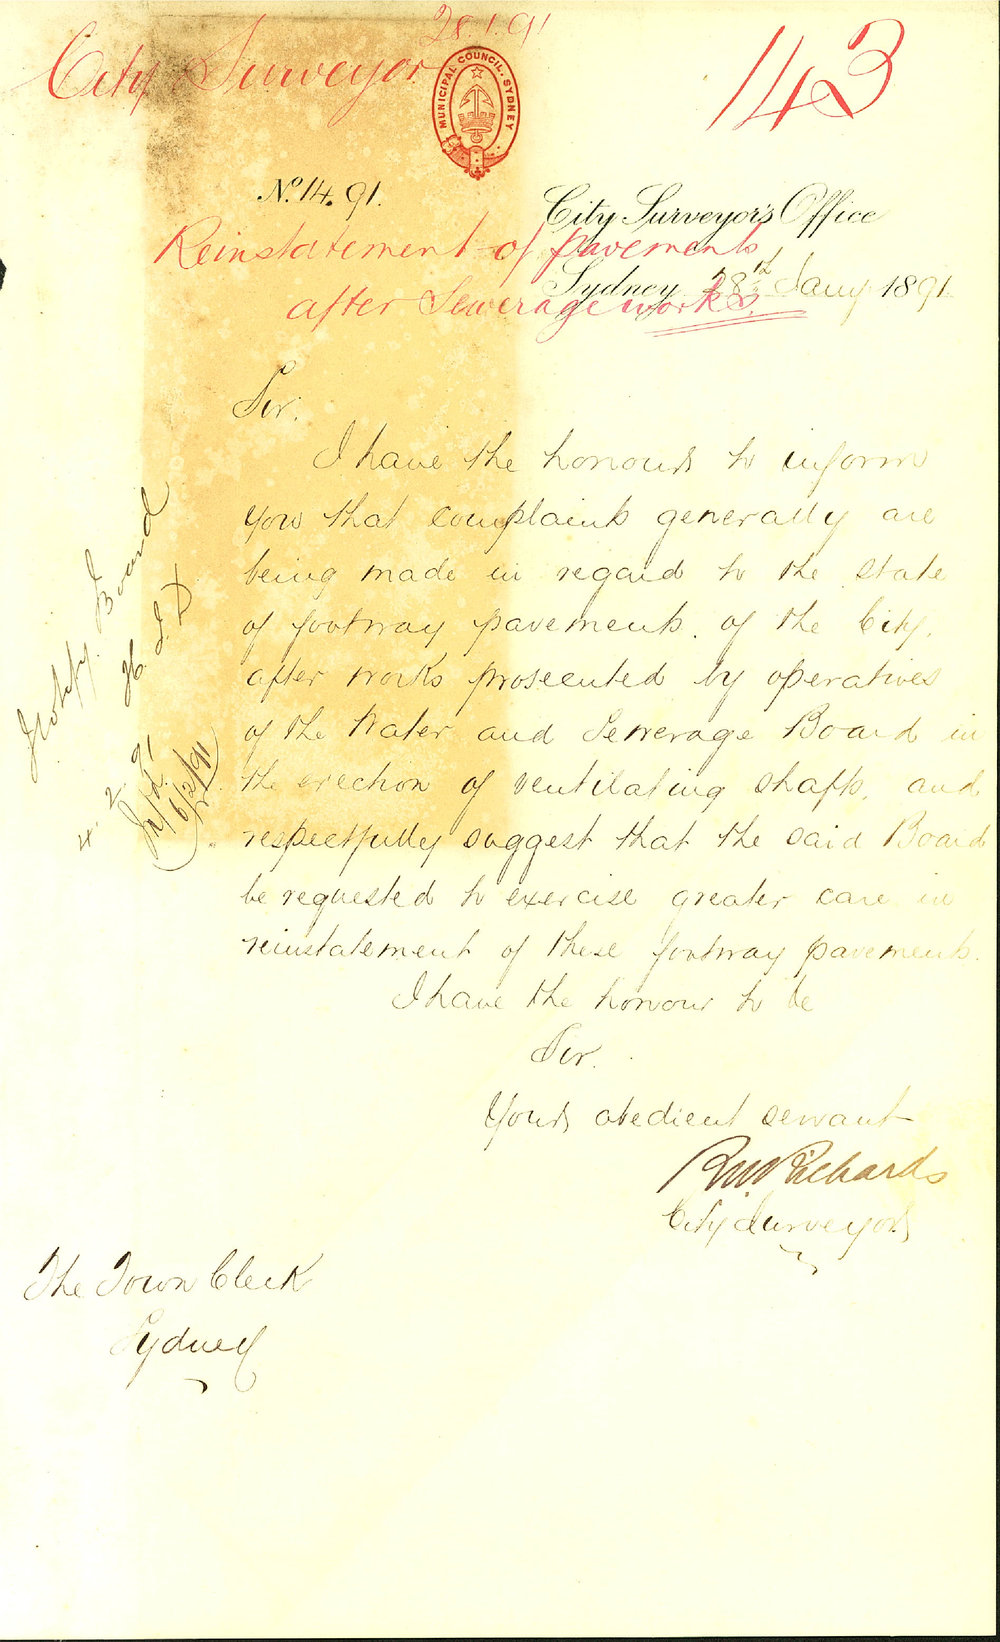 28.1.91
City Surveyor
143
MUNICIPAL COUNCIL. SYDNEY
No. 14.91.
City Surveyor's Office
Reinstatement of pavements
Sydney 28 Jany 1891
after Sewerage works.
Sir.
I have the honour to inform
you that complaints generally are
being made in regard to the state
of footway pavements. of the City.
after works prosecuted by operatives
of the Water and Sewerage Board in
the erection of ventilating shafts, and
respectfully suggest that the said Board
be requested to exercise greater care in
reinstatement of these footway pavements.
I have the honour to be
Sir.
Yours obedient servant
R W Richards
City Surveyor
The Town Clerk
Sydney
Notify Board
4.2.91
6/2/91